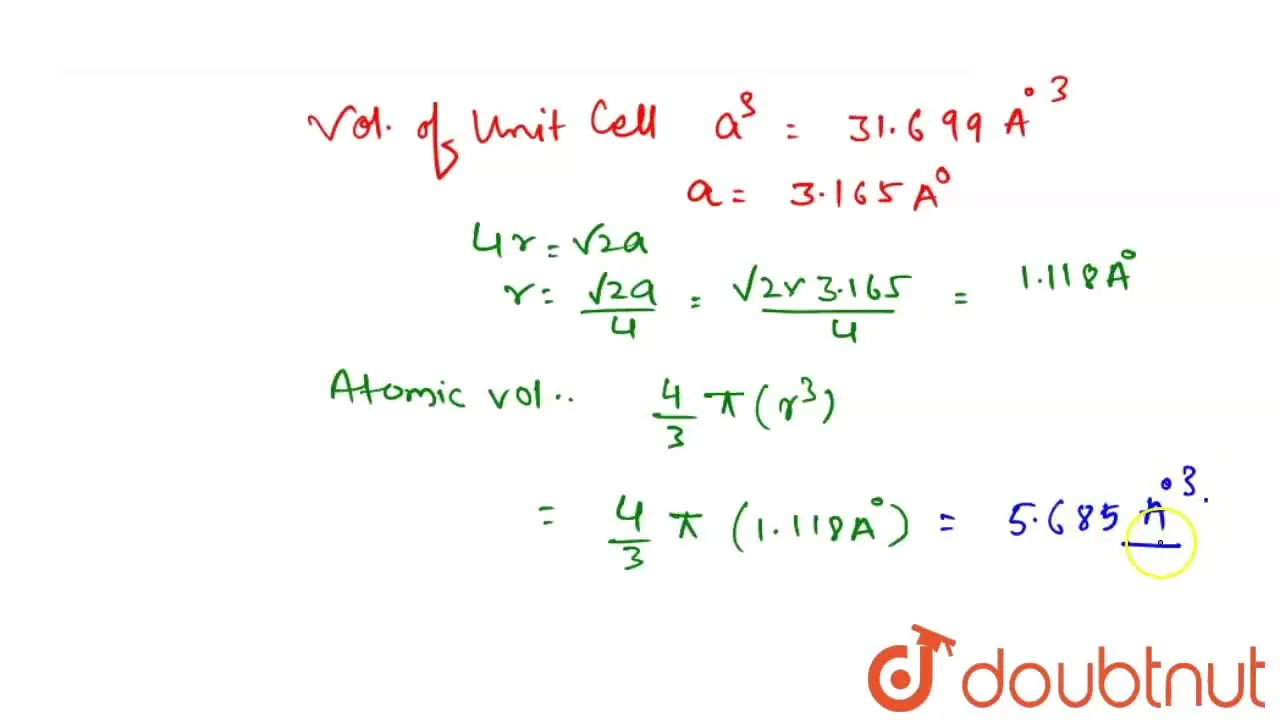 Vol. of Unit Cell a³ = 31.699 A°³
a = 3.165 A°
4r = √2a
r = √2a/4 = √2 x 3.165/4 = 1.118 A°
Atomic vol.. 4/3 π (r³)
= 4/3 π (1.118A°) = 5.685 A°³.
doubtnut